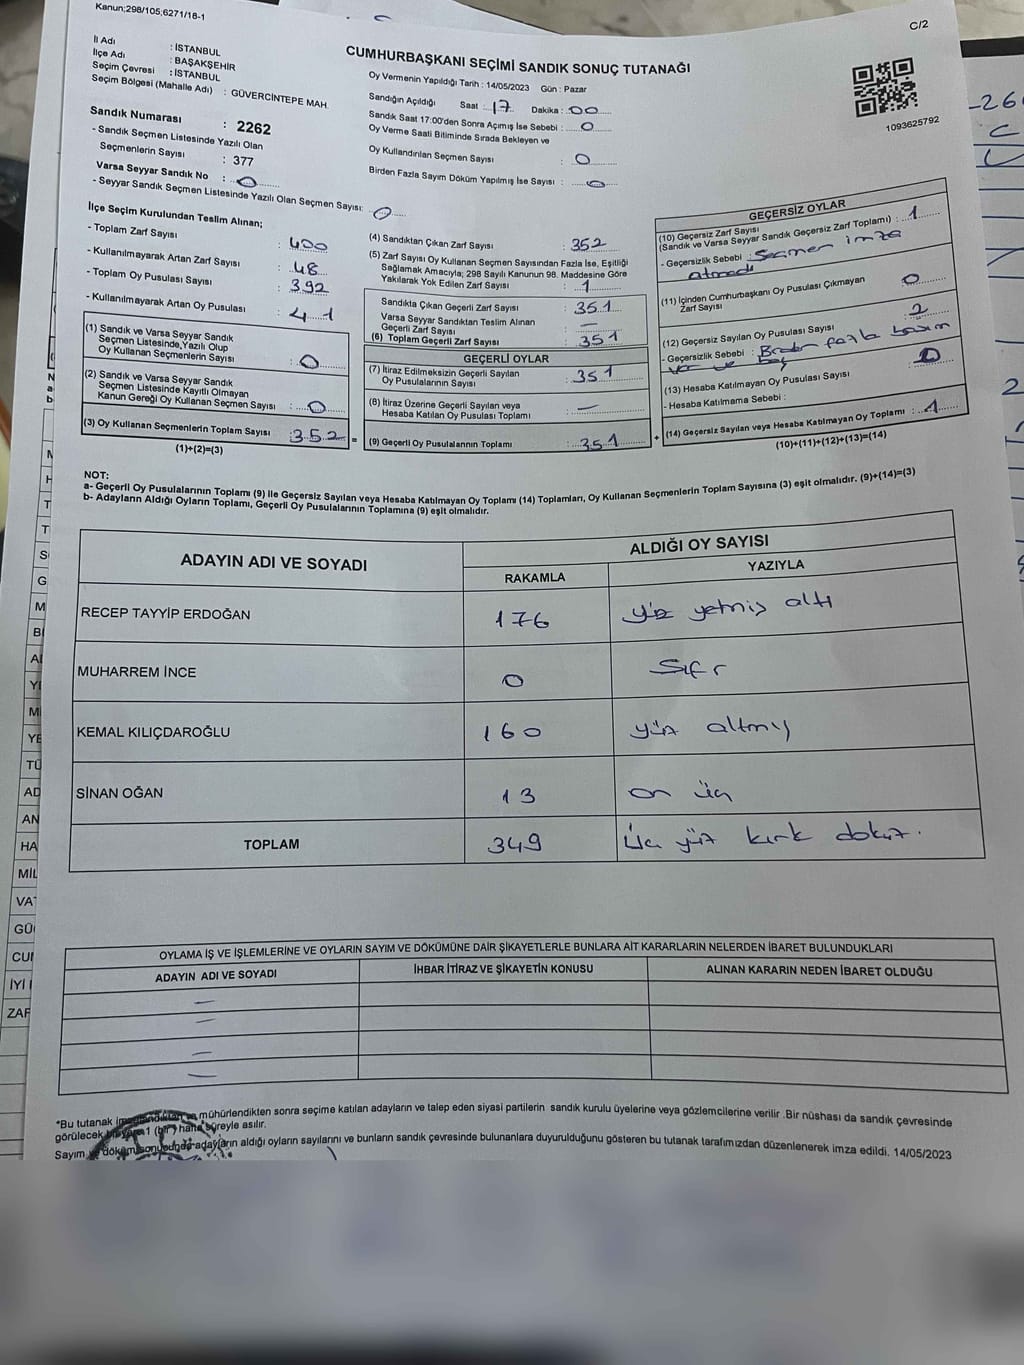 Kanun;298/105;6271/18-1
C/2
CUMHURBAŞKANI SEÇİMİ SANDIK SONUÇ TUTANAĞI
İl Adı : İSTANBUL
İlçe Adı : BAŞAKŞEHİR
Seçim Çevresi : İSTANBUL
Seçim Bölgesi (Mahalle Adı) : GÜVERCİNTEPE MAH.
Sandık Numarası : 2262
- Sandık Seçmen Listesinde Yazılı Olan
Seçmenlerin Sayısı : 377
Varsa Seyyar Sandık No : 0
- Seyyar Sandık Seçmen Listesinde Yazılı Olan Seçmen Sayısı: 0
Oy Vermenin Yapıldığı Tarih : 14/05/2023 Gün : Pazar
Sandığın Açıldığı Saat : 17 Dakika : 00
Sandık Saat 17:00'den Sonra Açımış İse Sebebi : 0
Oy Verme Saati Bitiminde Sırada Bekleyen ve
Oy Kullandırılan Seçmen Sayısı : 0
Birden Fazla Sayım Döküm Yapılmış İse Sayısı : 0
1093625792
İlçe Seçim Kurulundan Teslim Alınan;
- Toplam Zarf Sayısı : 400
- Kullanılmayarak Artan Zarf Sayısı : 48
- Toplam Oy Pusulası Sayısı : 392
- Kullanılmayarak Artan Oy Pusulası : 41
(1) Sandık ve Varsa Seyyar Sandık
Seçmen Listesinde,Yazılı Olup
Oy Kullanan Seçmenlerin Sayısı : 0
(2) Sandık ve Varsa Seyyar Sandık
Seçmen Listesinde Kayıtlı Olmayan
Kanun Gereği Oy Kullanan Seçmen Sayısı : 0
(3) Oy Kullanan Seçmenlerin Toplam Sayısı : 352 =
(1)+(2)=(3)
(4) Sandıktan Çıkan Zarf Sayısı : 352
(5) Zarf Sayısı Oy Kullanan Seçmen Sayısından Fazla İse, Eşitliği
Sağlamak Amacıyla; 298 Sayılı Kanunun 98. Maddesine Göre
Yakılarak Yok Edilen Zarf Sayısı : 1
Sandıkta Çıkan Geçerli Zarf Sayısı : 351
Varsa Seyyar Sandıktan Teslim Alınan
Geçerli Zarf Sayısı : —
(6) Toplam Geçerli Zarf Sayısı : 351
GEÇERLİ OYLAR
(7) İtiraz Edilmeksizin Geçerli Sayılan
Oy Pusulalarının Sayısı : 351
(8) İtiraz Üzerine Geçerli Sayılan veya
Hesaba Katılan Oy Pusulası Toplamı : —
(9) Geçerli Oy Pusulalarının Toplamı : 351 +
GEÇERSİZ OYLAR
(10) Geçersiz Zarf Sayısı
(Sandık ve Varsa Seyyar Sandık Geçersiz Zarf Toplamı) : 1
- Geçersizlik Sebebi : Seçmen imza
atmadı
(11) İçinden Cumhurbaşkanı Oy Pusulası Çıkmayan
Zarf Sayısı : 0
(12) Geçersiz Sayılan Oy Pusulası Sayısı : 2
- Geçersizlik Sebebi : fazla basım
var ve boş
(13) Hesaba Katılmayan Oy Pusulası Sayısı : 0
- Hesaba Katılmama Sebebi :
(14) Geçersiz Sayılan veya Hesaba Katılmayan Oy Toplamı : 1
(10)+(11)+(12)+(13)=(14)
NOT:
a- Geçerli Oy Pusulalarının Toplamı (9) ile Geçersiz Sayılan veya Hesaba Katılmayan Oy Toplamı (14) Toplamları, Oy Kullanan Seçmenlerin Toplam Sayısına (3) eşit olmalıdır. (9)+(14)=(3)
b- Adayların Aldığı Oyların Toplamı, Geçerli Oy Pusulalarının Toplamına (9) eşit olmalıdır.
ADAYIN ADI VE SOYADI ALDIĞI OY SAYISI
RAKAMLA YAZIYLA
RECEP TAYYİP ERDOĞAN 176 yüz yetmiş altı
MUHARREM İNCE 0 Sıfır
KEMAL KILIÇDAROĞLU 160 yüz altmış
SİNAN OĞAN 13 on üç
TOPLAM 349 Üç yüz kırk dokuz.
OYLAMA İŞ VE İŞLEMLERİNE VE OYLARIN SAYIM VE DÖKÜMÜNE DAİR ŞİKAYETLERLE BUNLARA AİT KARARLARIN NELERDEN İBARET BULUNDUKLARI
ADAYIN ADI VE SOYADI İHBAR İTİRAZ VE ŞİKAYETİN KONUSU ALINAN KARARIN NEDEN İBARET OLDUĞU
*Bu tutanak mühürlendikten sonra seçime katılan adayların ve talep eden siyasi partilerin sandık kurulu üyelerine veya gözlemcilerine verilir .Bir nüshası da sandık çevresinde
görülecek bir yere 1 (bir) hafta süreyle asılır.
Sayım ve döküm sonucunda adayların aldığı oyların sayılarını ve bunların sandık çevresinde bulunanlara duyurulduğunu gösteren bu tutanak tarafımızdan düzenlenerek imza edildi. 14/05/2023